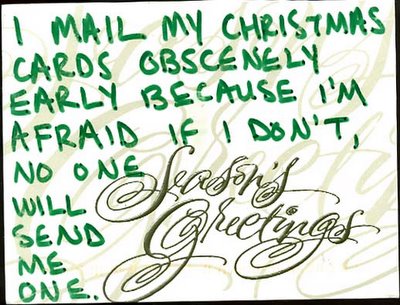 I MAIL MY CHRISTMAS
CARDS OBSCENELY
EARLY BECAUSE I'M
AFRAID IF I DON'T,
NO ONE
WILL
SEND
ME
ONE.
Season's
Greetings